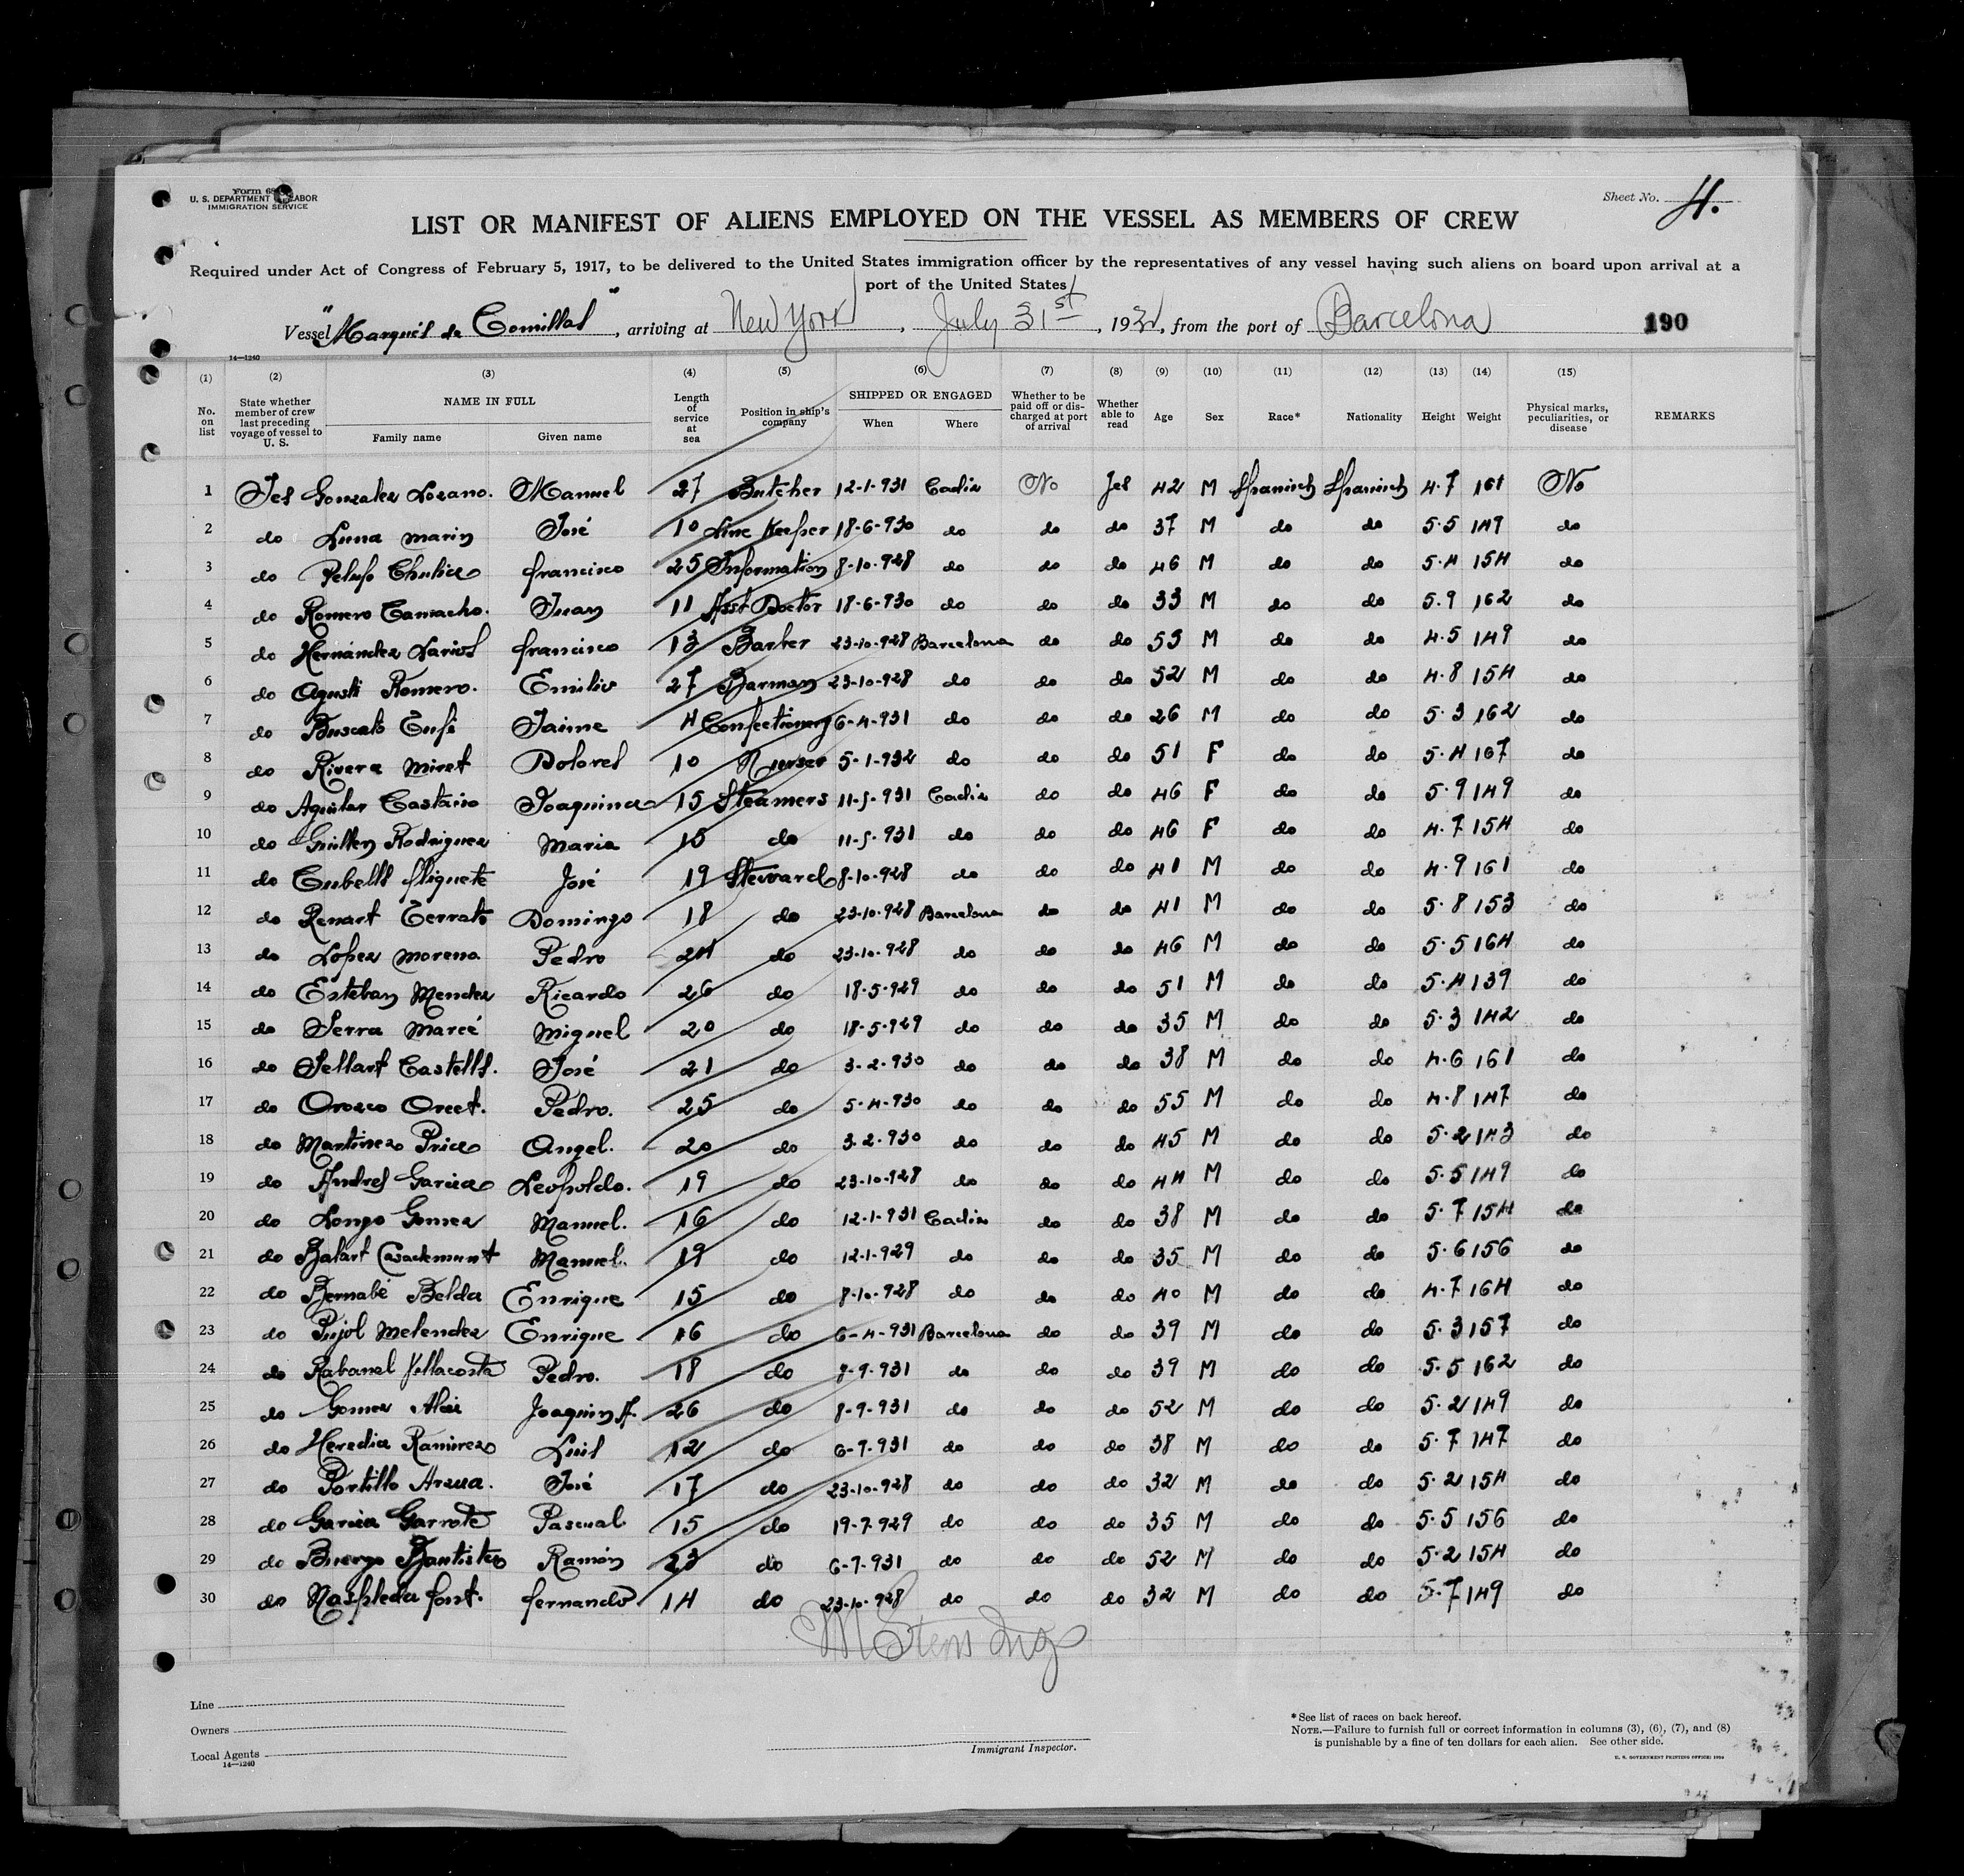 Form 68
U. S. DEPARTMENT LABOR
IMMIGRATION SERVICE
Sheet No. 4.
LIST OR MANIFEST OF ALIENS EMPLOYED ON THE VESSEL AS MEMBERS OF CREW
Required under Act of Congress of February 5, 1917, to be delivered to the United States immigration officer by the representatives of any vessel having such aliens on board upon arrival at a
port of the United States
Vessel "Marqués de Comillas", arriving at New York, July 31st, 193, from the port of Barcelona 190
14—1240
(1) (2) (3) (4) (5) (6) (7) (8) (9) (10) (11) (12) (13) (14) (15)
No. on list State whether member of crew last preceding voyage of vessel to U. S. NAME IN FULL Family name Given name Length of service at sea Position in ship's company SHIPPED OR ENGAGED When Where Whether to be paid off or discharged at port of arrival Whether able to read Age Sex Race* Nationality Height Weight Physical marks, peculiarities, or disease REMARKS
1 Yes Gonzalez Lozano. Manuel 27 Butcher 12-1-931 Cadiz No Yes 42 M Spanish Spanish 4.7 161 No
2 do Luna Marin José 10 Keeper 18-6-930 do do do 37 M do do 5.5 149 do
3 do Pelufo Chulia Francisco 25 Information 8-10-928 do do do 46 M do do 5.4 154 do
4 do Romero Camacho. Juan 11 Asst Doctor 18-6-930 do do do 33 M do do 5.9 162 do
5 do Hernández Larios Francisco 13 Barber 23-10-928 Barcelona do do 53 M do do 4.5 149 do
6 do Agusti Romero. Emilio 27 Barman 23-10-928 do do do 52 M do do 4.8 154 do
7 do Buscato Jaime 4 Confectionery 6-4-931 do do do 26 M do do 5.3 162 do
8 do Rivera Miret Dolores 10 Nurser 5-1-932 do do do 51 F do do 5.4 167 do
9 do Aguilar Castaño Joaquina 15 Steamers 11-5-931 Cadiz do do 46 F do do 5.9 149 do
10 do Guillen Rodriguez Maria 15 do 11-5-931 do do do 46 F do do 4.7 154 do
11 do Cubells José 19 Steward 8-10-928 do do do 41 M do do 4.9 161 do
12 do Renart Terrats Domingo 18 do 23-10-928 Barcelona do do 41 M do do 5.8 153 do
13 do Lopez Moreno Pedro 24 do 23-10-928 do do do 46 M do do 5.5 164 do
14 do Esteban Mendez Ricardo 26 do 18-5-929 do do do 51 M do do 5.4 139 do
15 do Serra Marcé Miguel 20 do 18-5-929 do do do 35 M do do 5.3 142 do
16 do Sellart Castells. José 21 do 3-2-930 do do do 38 M do do 4.6 161 do
17 do Orozco Orcet. Pedro. 25 do 5-4-930 do do do 55 M do do 4.8 147 do
18 do Martinez Angel. 20 do 3-2-930 do do do 45 M do do 5.2 143 do
19 do Andres Garcia Leopoldo. 19 do 23-10-928 do do do 44 M do do 5.5 149 do
20 do Longo Gomez Manuel. 16 do 12-1-931 Cadiz do do 38 M do do 5.7 154 do
21 do Balart Casademunt Manuel. 19 do 12-1-929 do do do 35 M do do 5.6 156 do
22 do Bernabé Belda Enrique 15 do 8-10-928 do do do 40 M do do 4.7 164 do
23 do Pujol Melendez Enrique 16 do 6-4-931 Barcelona do do 39 M do do 5.3 157 do
24 do Rabanal Villacosta Pedro. 18 do 8-9-931 do do do 39 M do do 5.5 162 do
25 do Gomez Joaquin 26 do 8-9-931 do do do 52 M do do 5.2 149 do
26 do Heredia Ramirez Luis 12 do 6-7-931 do do do 38 M do do 5.7 147 do
27 do Portillo José 17 do 23-10-928 do do do 32 M do do 5.2 154 do
28 do Garcia Garrote Pascual 15 do 19-7-929 do do do 35 M do do 5.5 156 do
29 do Buergo Bautista Ramón 23 do 6-7-931 do do do 52 M do do 5.2 154 do
30 do Naspleda Font. Fernando 14 do 23-10-928 do do do 32 M do do 5.7 149 do
Line
Owners
Local Agents
14—1240
Immigrant Inspector.
*See list of races on back hereof.
NOTE.—Failure to furnish full or correct information in columns (3), (6), (7), and (8)
is punishable by a fine of ten dollars for each alien. See other side.
U. S. GOVERNMENT PRINTING OFFICE